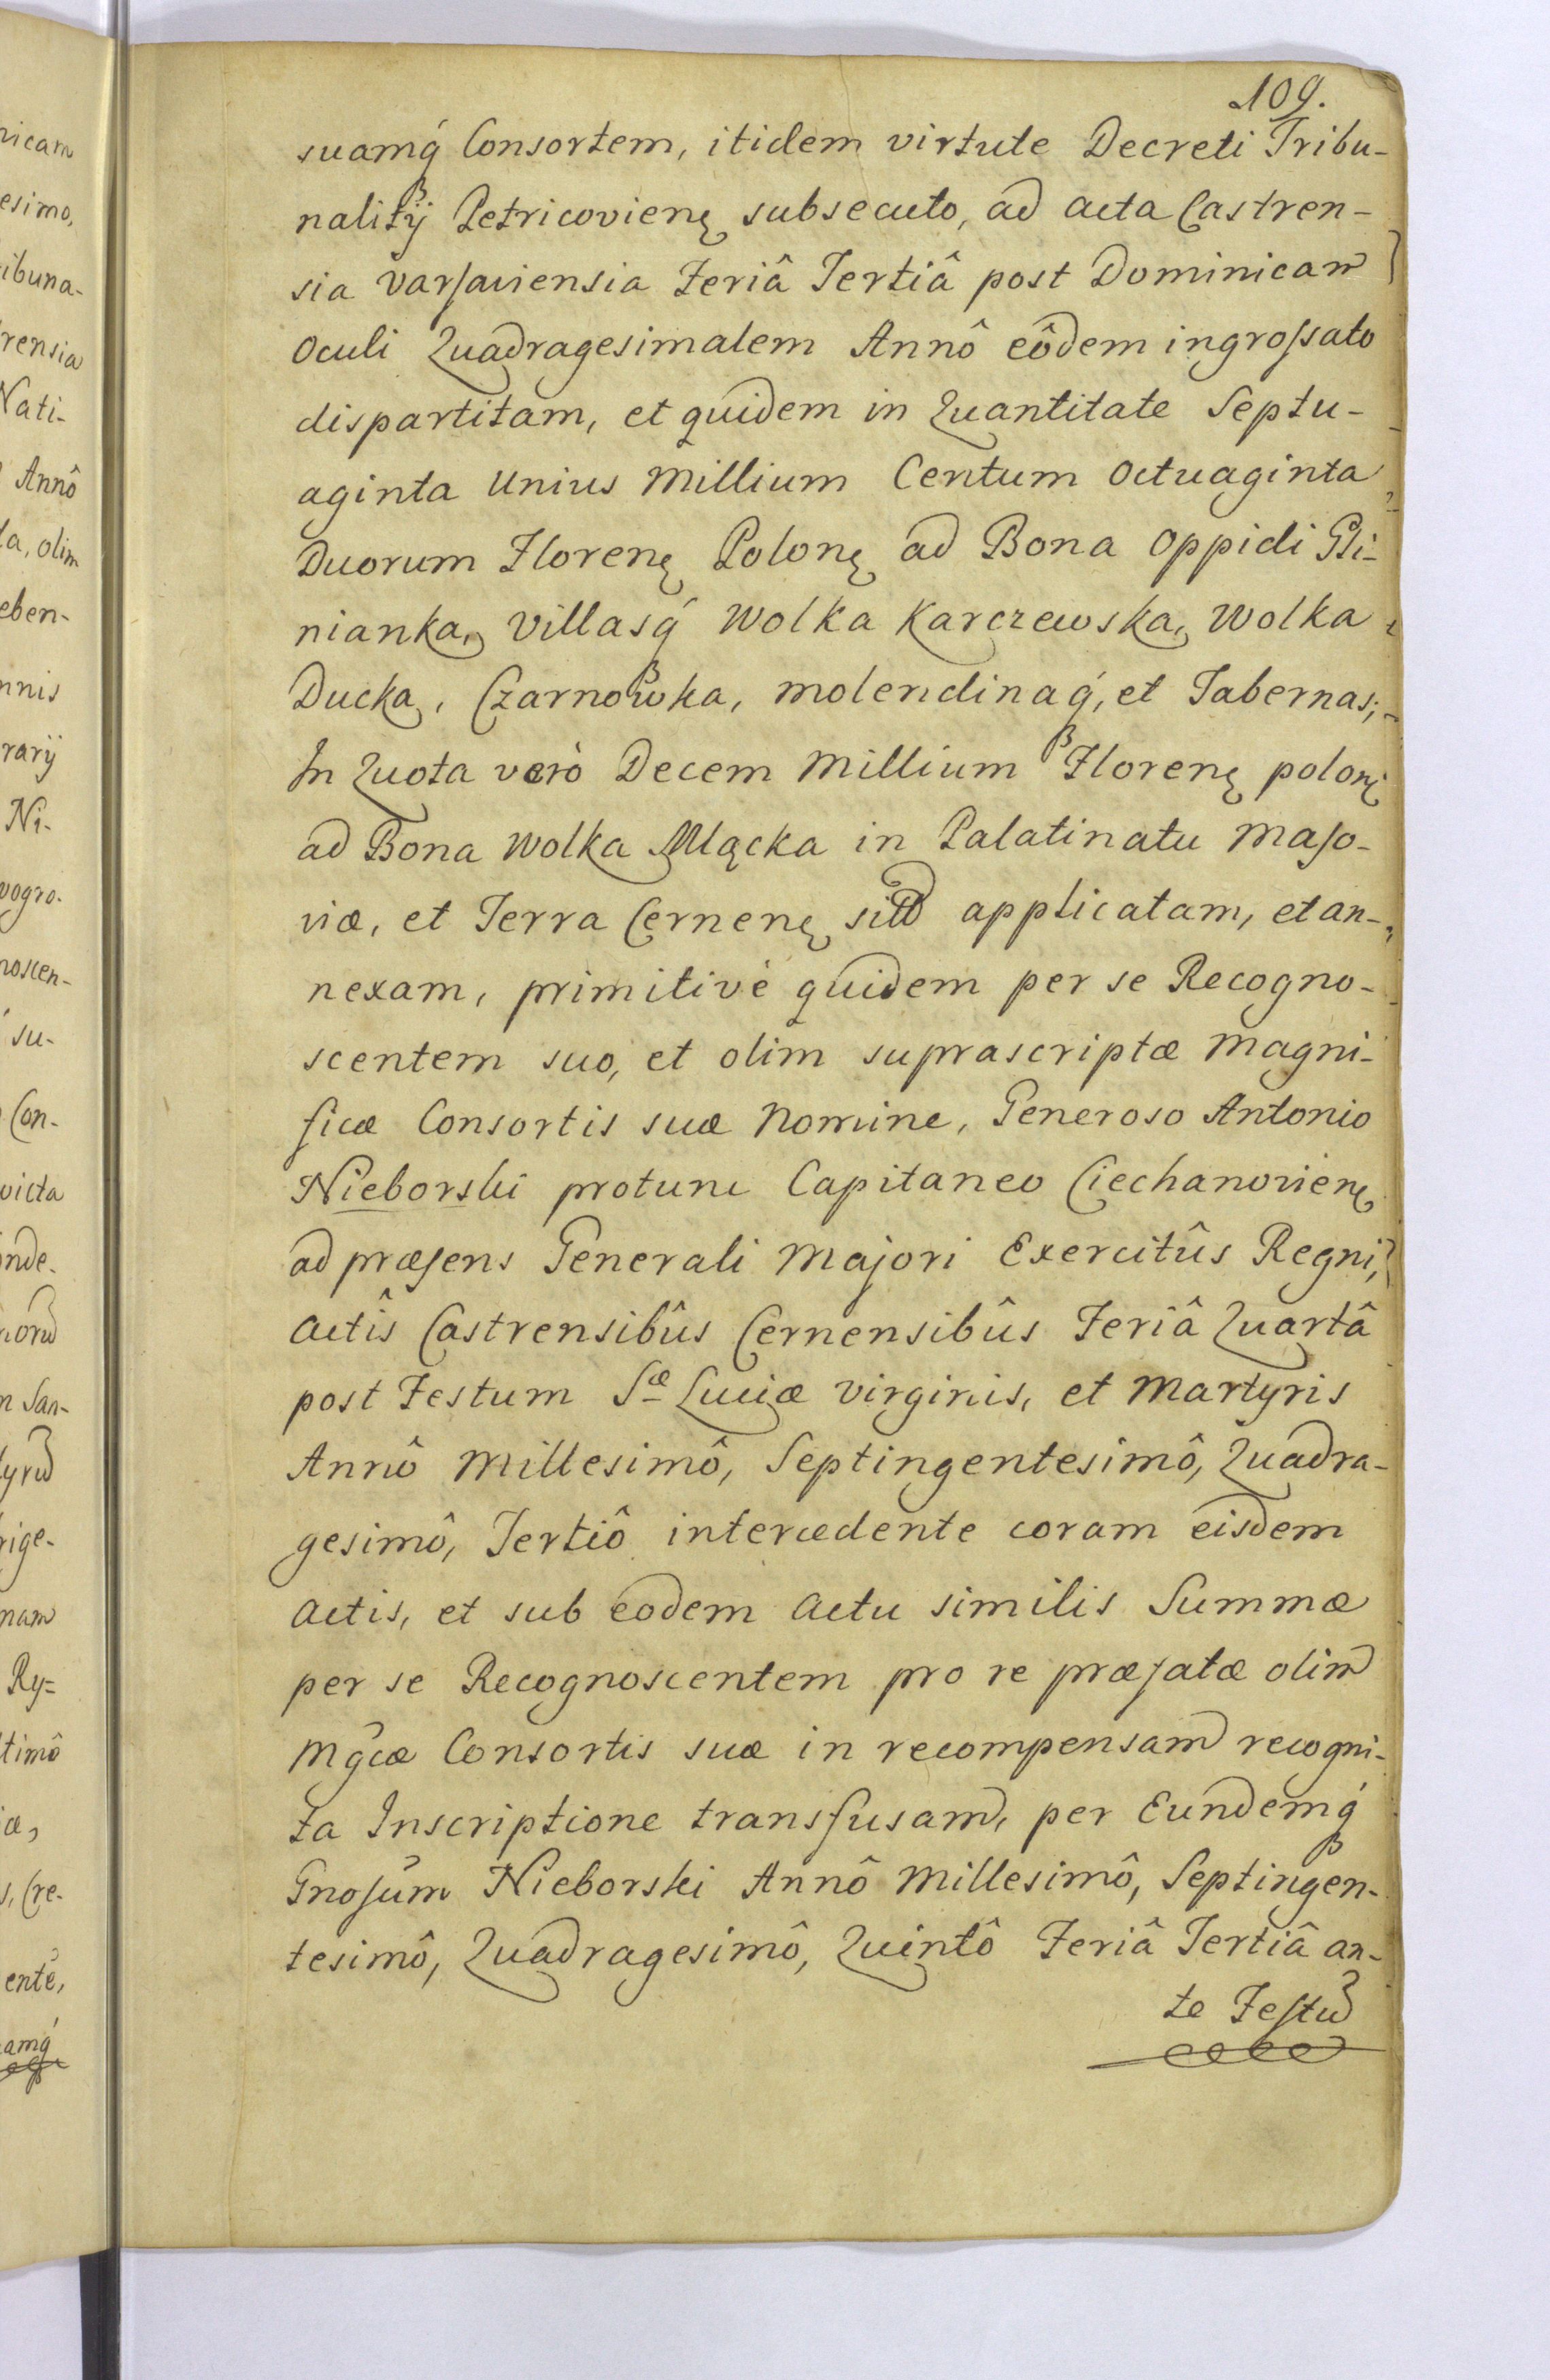 109.
suamq́ Consortem, itidem virtute Decreti Tribu-
nalitij Petricovienę subsecuto, ad acta Castren-
sia varsaviensia Feriâ Tertiâ post Dominicam
Oculi Quadragesimalem Annô eôdem ingrossato
dispartitam, et quidem in Quantitate Septu-
aginta Unius Millium Centum Octuaginta
Duorum Florenę Polonę ad Bona Oppidi Gli-
nianka, villasq́ Wolka Karczewska, Wolka
Ducka, Czarnowka, molendinaq́, et Tabernas;
In Quota verò Decem Millium Florenę polonę
ad Bona Wolka Mlącka in Palatinatu Maso-
viæ, et Terra Cernenę sitt applicatam, et an-
nexam, primitivè quidem per se Recogno-
scentem suo, et olim suprascriptæ Magni-
ficæ Consortis suæ Nomine, Generoso Antonio
Nieborski protunc Capitaneo Ciechanovienę
ad præsens Generali Majori Exercitûs Regni,
Actîs Castrensibûs Cernensibûs Feriâ Quartâ
post Festum Sæ Luciæ virginis, et Martyris
Annô Millesimô, Septingentesimô, Quadra-
gesimô, Tertiô intercedente coram eisdem
Actis, et sub eodem Actu similis Summæ
per se Recognoscentem pro re præfatæ olim
Mgcæ Consortis suæ in recompensam recogni-
ta Inscriptione transfusam, per Eundemq́
Gnosum Nieborski Annô Millesimô, Septingen-
tesimô, Quadragesimô, Quintô Feriâ Tertiâ an-
te Festu
nicam
esimo,
ribuna-
rensia
Nati-
Annô
la, olim
eben-
nnis
rarij
Ni-
vogro-
noscen-
su-
Con-
victa
nde-
n San-
rige-
nam
Ry=
timô
æ,
s, Cre-
ente,
amq́